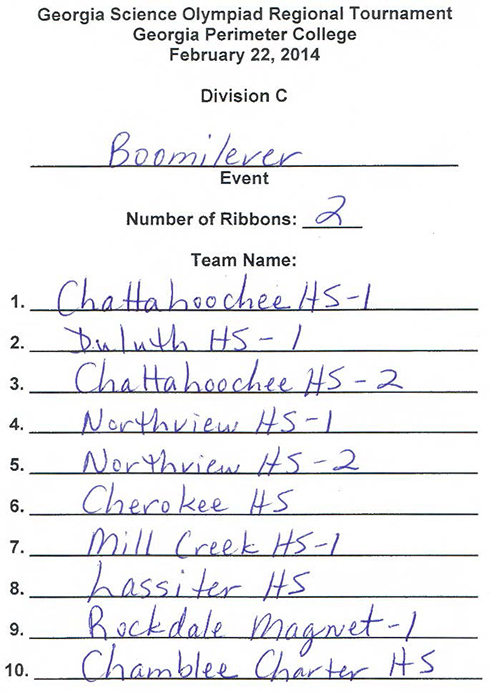 Georgia Science Olympiad Regional Tournament
Georgia Perimeter College
February 22, 2014
Division C
Boomilever
Event
Number of Ribbons: 2
Team Name:
1. Chattahoochee HS-1
2. Duluth HS-1
3. Chattahoochee HS-2
4. Northview HS-1
5. Northview HS-2
6. Cherokee HS
7. Mill Creek HS-1
8. Lassiter HS
9. Rockdale Magnet-1
10. Chamblee Charter HS